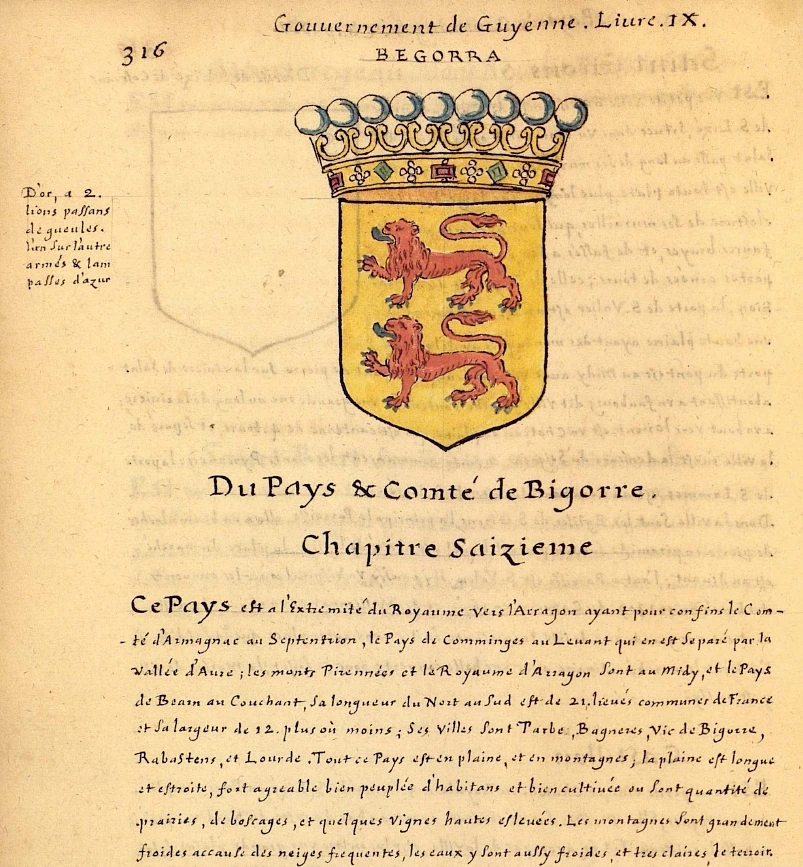 Gouuernement de Guyenne. Liure. IX.
316
BEGORRA
D'or, a 2.
lions passans
de gueules.
l'un sur l'autre
armés & lam
passés d'azur
Du Pays & Comté de Bigorre.
Chapitre Saizieme
Ce Pays est a l'Extremité du Royaume vers l'Arragon ayant pour confins le Com-
-té d'Armagnac au Septentrion, le Pays de Comminges au Leuant qui en est Separé par la
Vallée d'Aure; les monts Pirennées et le Royaume d'Arragon Sont au Midy, et le Pays
de Bearn au Couchant, Sa longueur du Nort au Sud est de 21. lieués communes de France
et Sa largeur de 12. plus où moins; Ses Villes Sont Tarbe, Bagneres, Vic de Bigorre,
Rabastens, et Lourde. Tout ce Pays est en plaine, et en montagnes; la plaine est longue
et estroite, fort agreable bien peuplée d'habitans et bien cultiuée ou Sont quantité de
prairies, de boscages, et quelques vignes hautes esleuées. Les montagnes Sont grandement
froides accause des neiges frequentes, les eaux y Sont aussy froides, et tres claires, le terroir